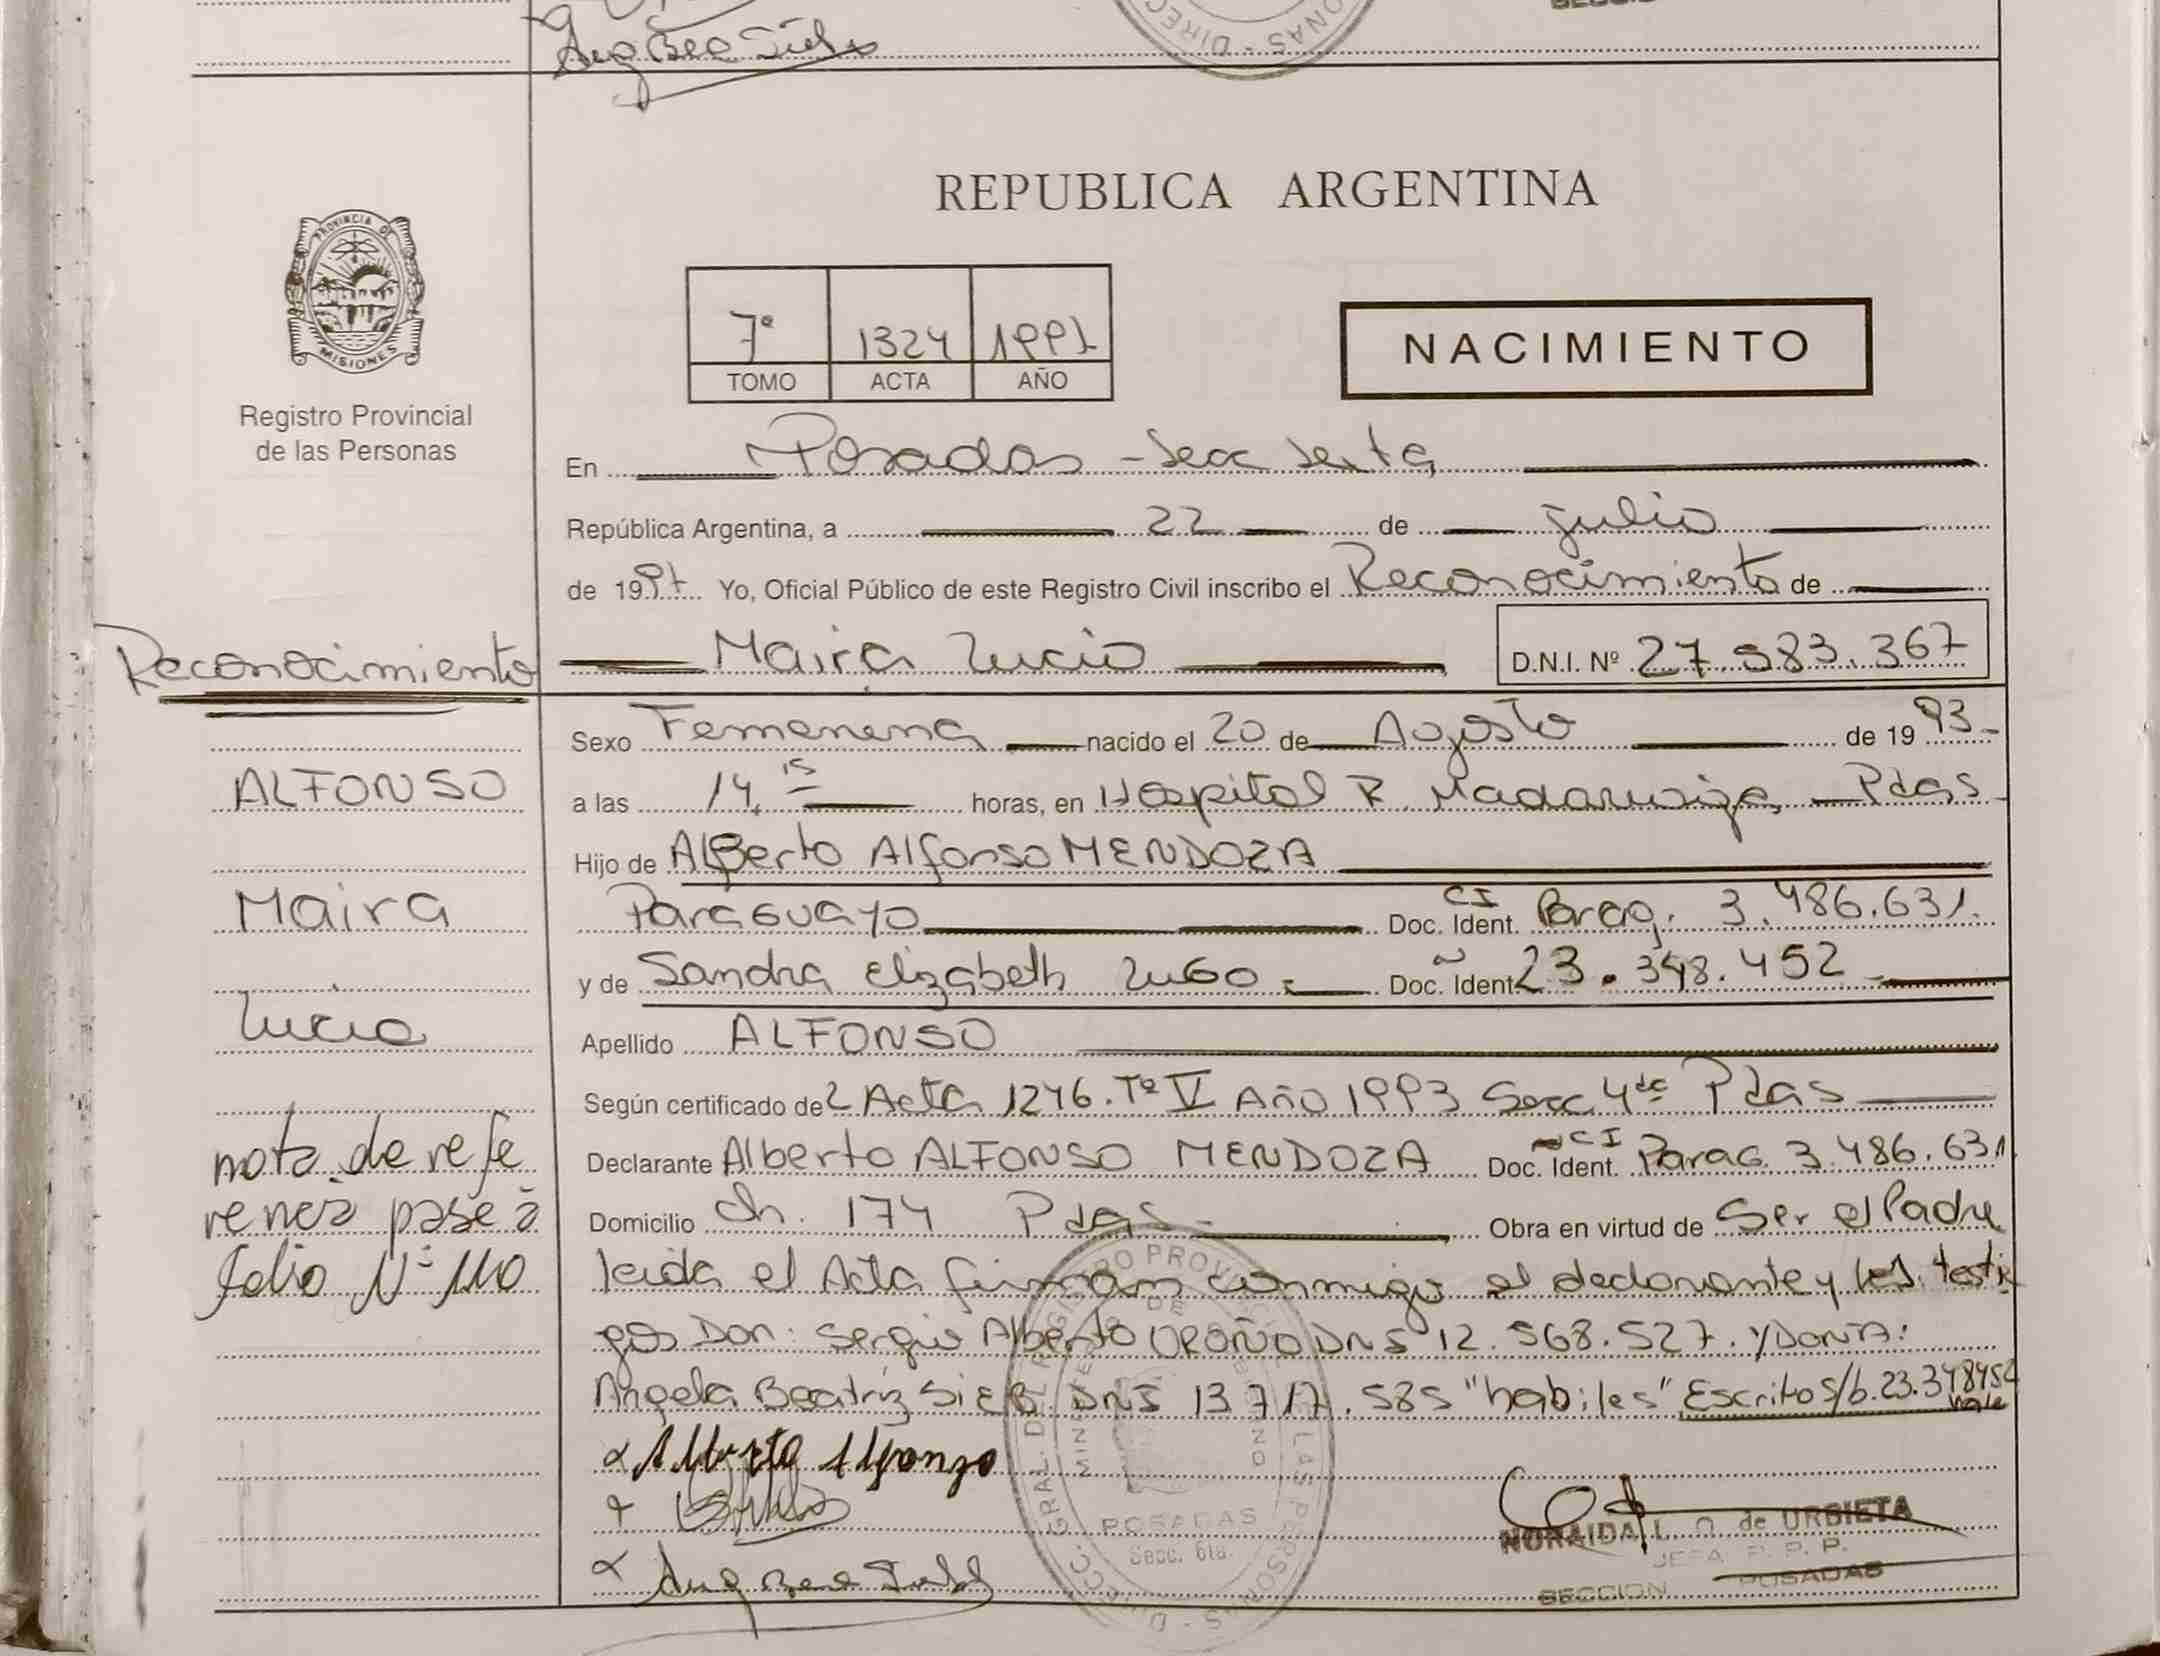 REPUBLICA ARGENTINA
PROVINCIA DE
MISIONES
Registro Provincial
de las Personas
7º 1324 1997
TOMO ACTA AÑO
NACIMIENTO
En Posadas - Secc Sexta
República Argentina, a 22 de julio
de 1997. Yo, Oficial Público de este Registro Civil inscribo el Reconocimiento de
Maira Lucia D.N.I. Nº 27.983.367
Reconocimiento
ALFONSO
Maira
Lucia
nota de refe
rencia pase a
folio Nº 110
Sexo Femenena nacido el 20 de Agosto de 1993
a las 14,15 horas, en Hospital R. Madariaga, Pdas
Hijo de Alberto Alfonso MENDOZA
Paraguayo CI Doc. Ident. Parag. 3.486.631.
y de Sandra Elizabeth Lugo Doc. Ident. 23.348.452
Apellido ALFONSO
Según certificado de Acta 1246. Tº V Año 1993 Secc 4ta Pdas
Declarante Alberto ALFONSO MENDOZA CI Doc. Ident. Parag. 3.486.631
Domicilio Ch. 174 Pdas Obra en virtud de Ser el Padre
leida el Acta firman conmigo el declarante y los testi
gos Don: Sergio Alberto OROÑO DNI 12.568.527. y DOÑA:
Angela Beatriz SIEB. DNI 13.717.585 "habiles" Escrito s/b. 23.348452
vale
Alberto Alfonzo
POSADAS
Secc. 6ta.
NORAIDA L. O. de URBIETA
JEFA R. P. P.
SECCION POSADAS